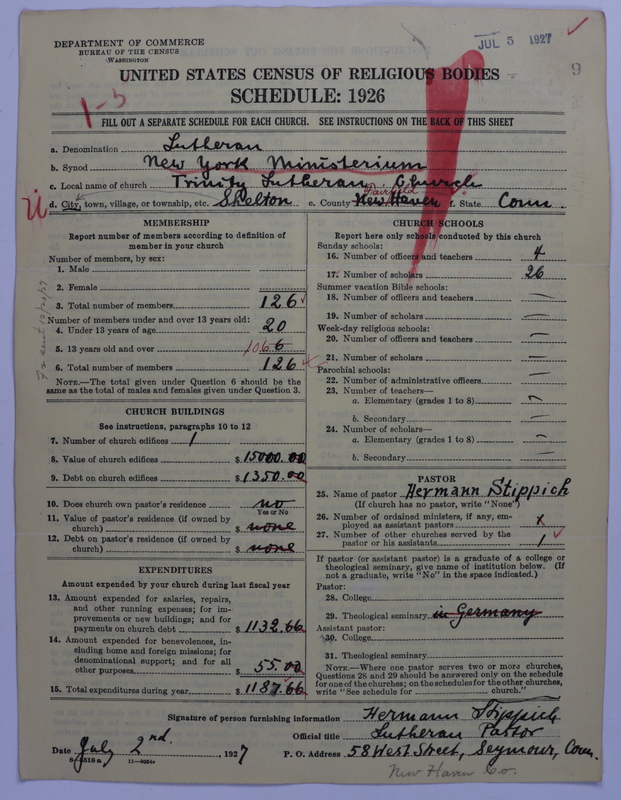 DEPARTMENT OF COMMERCE
BUREAU OF THE CENSUS
WASHINGTON
JUL 5 1927
9
UNITED STATES CENSUS OF RELIGIOUS BODIES
SCHEDULE: 1926
1-3
FILL OUT A SEPARATE SCHEDULE FOR EACH CHURCH. SEE INSTRUCTIONS ON THE BACK OF THIS SHEET
a. Denomination Lutheran
b. Synod New York Ministerium
c. Local name of church Trinity Lutheran Church
Fairfield
d. City, town, village, or township, etc. Shelton e. County New Haven f. State Conn.
MEMBERSHIP
Report number of members according to definition of member in your church
Number of members, by sex:
1. Male
2. Female
3. Total number of members 126
Number of members under and over 13 years old:
4. Under 13 years of age 20
5. 13 years old and over 106 6
6. Total number of members 126
NOTE.—The total given under Question 6 should be the
same as the total of males and females given under Question 3.
CHURCH BUILDINGS
See instructions, paragraphs 10 to 12
7. Number of church edifices 1
8. Value of church edifices $15000.00
9. Debt on church edifices $1350.00
10. Does church own pastor's residence no
Yes or No
11. Value of pastor's residence (if owned by
church) $ none
12. Debt on pastor's residence (if owned by
church) $ none
EXPENDITURES
Amount expended by your church during last fiscal year
13. Amount expended for salaries, repairs,
and other running expenses; for im-
provements or new buildings; and for
payments on church debt $1132.66
14. Amount expended for benevolences, in-
cluding home and foreign missions; for
denominational support; and for all
other purposes $55.00
15. Total expenditures during year $1187.66
CHURCH SCHOOLS
Report here only schools conducted by this church
Sunday schools:
16. Number of officers and teachers 4
17. Number of scholars 26
Summer vacation Bible schools:
18. Number of officers and teachers —
19. Number of scholars —
Week-day religious schools:
20. Number of officers and teachers —
21. Number of scholars —
Parochial schools:
22. Number of administrative officers —
23. Number of teachers—
a. Elementary (grades 1 to 8) —
b. Secondary —
24. Number of scholars—
a. Elementary (grades 1 to 8) —
b. Secondary —
PASTOR
25. Name of pastor Hermann Stippich
(If church has no pastor, write "None")
26. Number of ordained ministers, if any, em-
ployed as assistant pastors x
27. Number of other churches served by the
pastor or his assistants 1
If pastor (or assistant pastor) is a graduate of a college or
theological seminary, give name of institution below. (If
not a graduate, write "No" in the space indicated.)
Pastor:
28. College
29. Theological seminary in Germany
Assistant pastor:
30. College
31. Theological seminary
NOTE.—Where one pastor serves two or more churches,
Questions 28 and 29 should be answered only on the schedule
for one of the churches; on the schedules for the other churches,
write "See schedule for church."
Signature of person furnishing information Hermann Stippich
Official title Lutheran Pastor
Date July 2nd., 1927 P. O. Address 58 West Street, Seymour, Conn.
11—9064
New Haven Co.